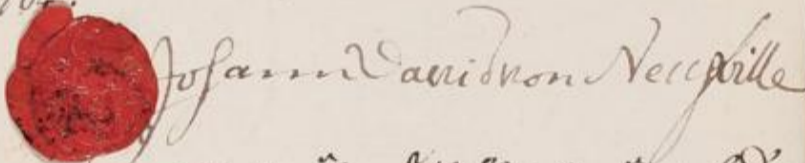 Johann David von Neufville